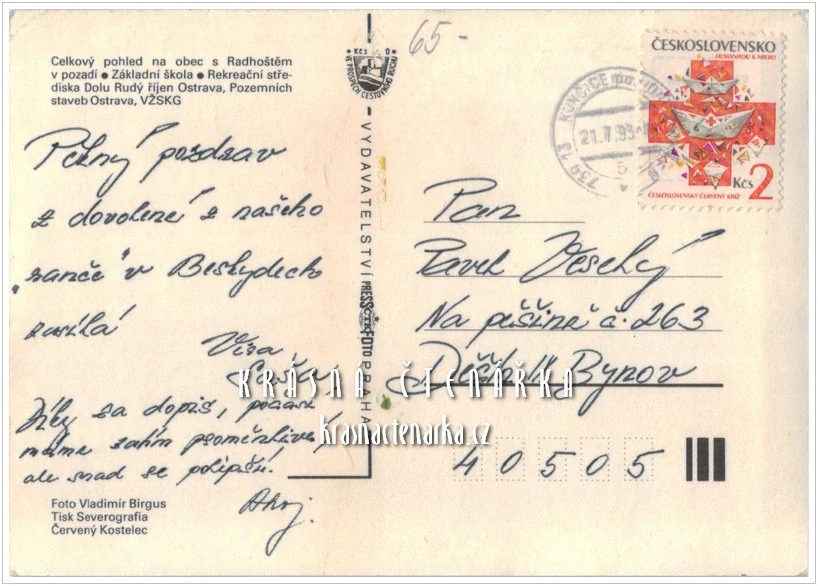 Celkový pohled na obec s Radhoštěm
v pozadí ● Základní škola ● Rekreační stře-
diska Dolu Rudý říjen Ostrava, Pozemních
staveb Ostrava, VŽSKG
Pěkný pozdrav
z dovolené z našeho
„ranče" v Beskydech
zasílá
Věra
Díky za dopis, počasí
máme zatím proměnlivé,
ale snad se polepší.
Ahoj.
Foto Vladimír Birgus
Tisk Severografia
Červený Kostelec
Kčs 0
VE PROSPĚCH CESTOVNÍHO RUCHU
VYDAVATELSTVÍ PRESSFOTO PRAHA
65-
739 13 KUNČICE
21.7.93
5
ČESKOSLOVENSKO
HUMANITOU K MÍRU
Kčs 2
ČESKOSLOVENSKÝ ČERVENÝ KŘÍŽ
Pan
Pavel Veselý
Na pěšině č. 263
Děčín Bynov
40505
KRÁSNÁ ČTENÁŘKA
krasnactenarka.cz